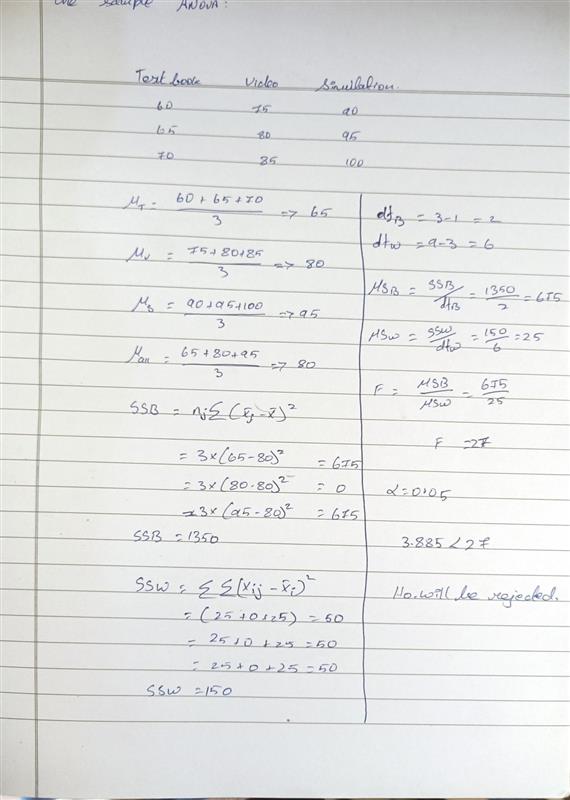 one sample ANOVA:
Text book Video Simulation.
60 75 90
65 80 95
70 85 100
μT = 60 + 65 + 70 / 3 => 65
μv = 75+80+85 / 3 => 80
μs = 90+95+100 / 3 => 95
μall = 65+80+95 / 3 => 80
SSB = nj Σ (x̄j - x̄)²
= 3×(65-80)² = 675
= 3×(80-80)² = 0
= 3×(95-80)² = 675
SSB = 1350
SSW = Σ Σ (xij - x̄i)²
= (25+0+25) = 50
= 25+0+25 = 50
= 25+0+25 = 50
SSW = 150
dfB = 3-1 = 2
dfw = 9-3 = 6
MSB = SSB / dfB = 1350 / 2 = 675
MSW = SSW / dfw = 150 / 6 = 25
F = MSB / MSW = 675 / 25
F = 27
α = 0.05
3.885 < 27
Ho. will be rejected.